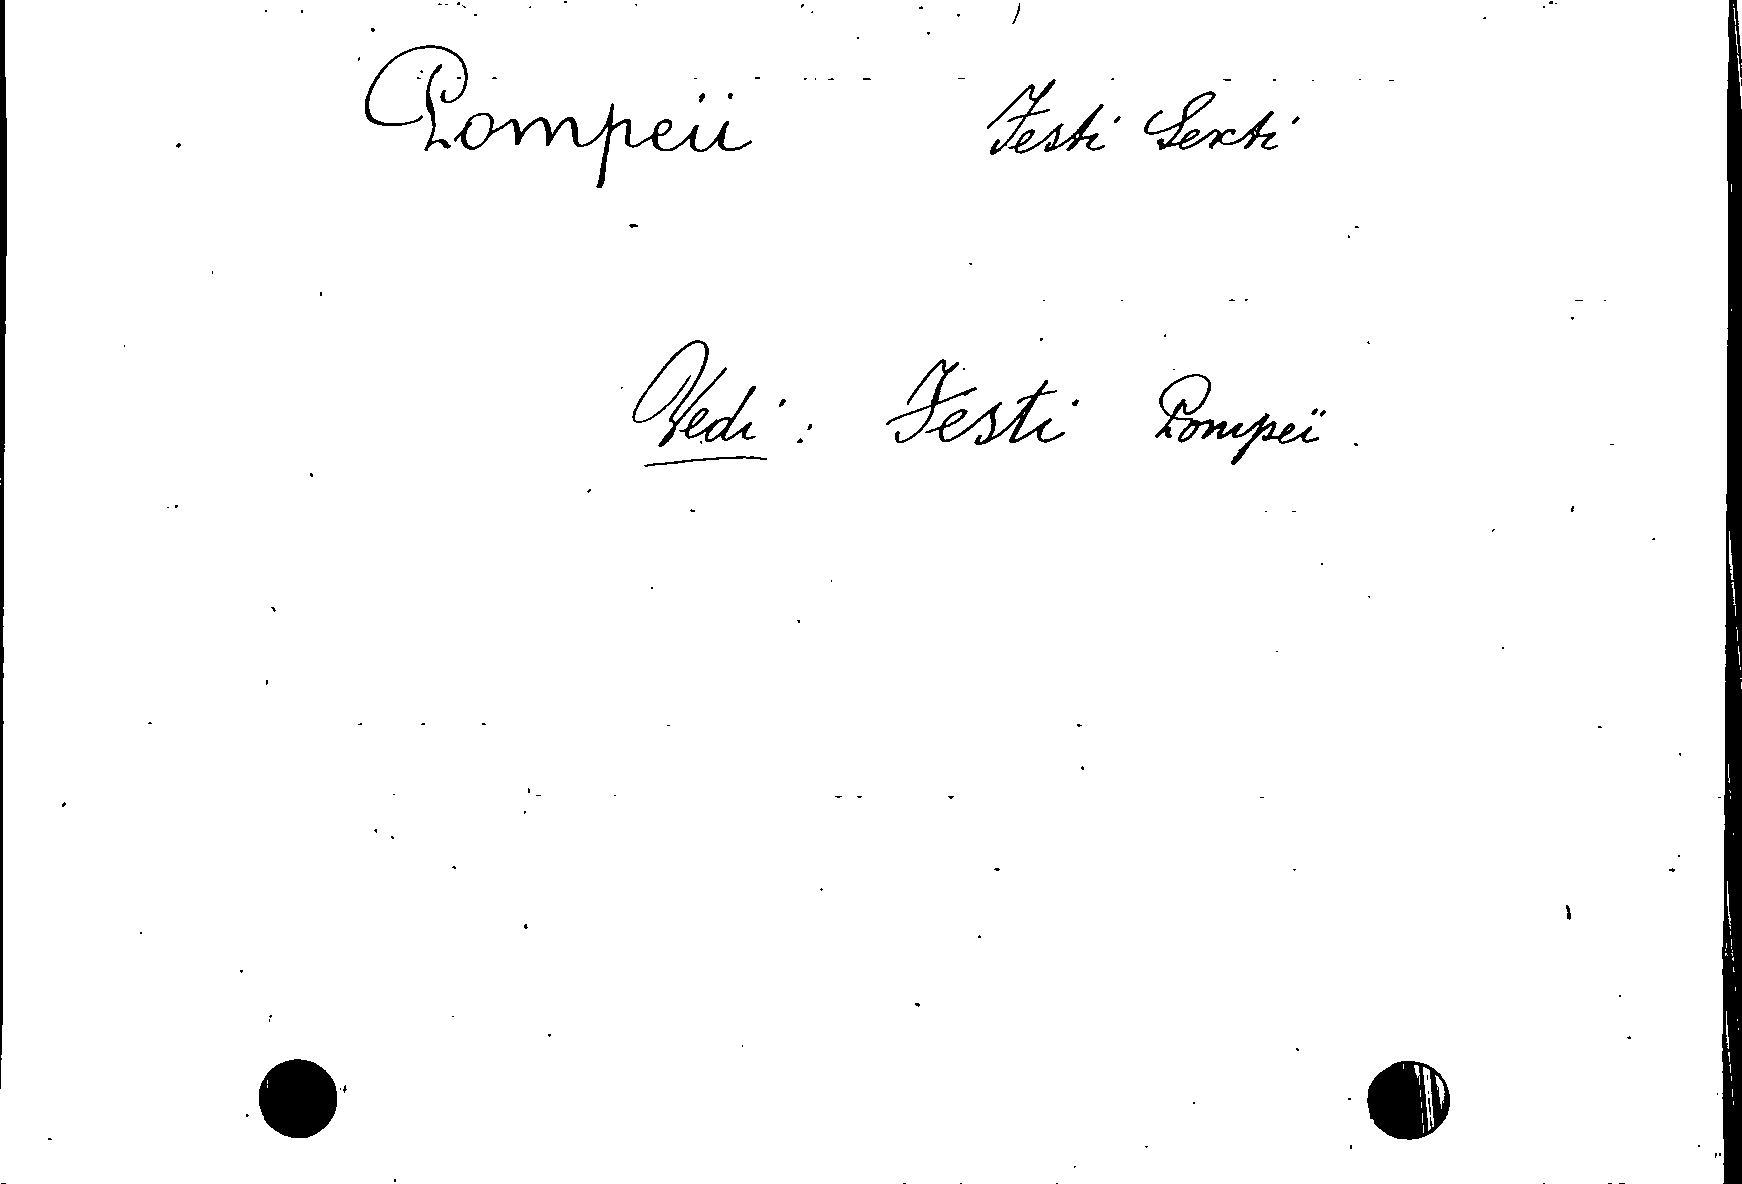 Pompeii Festi Sexti
Vedi: Festi Pompeii